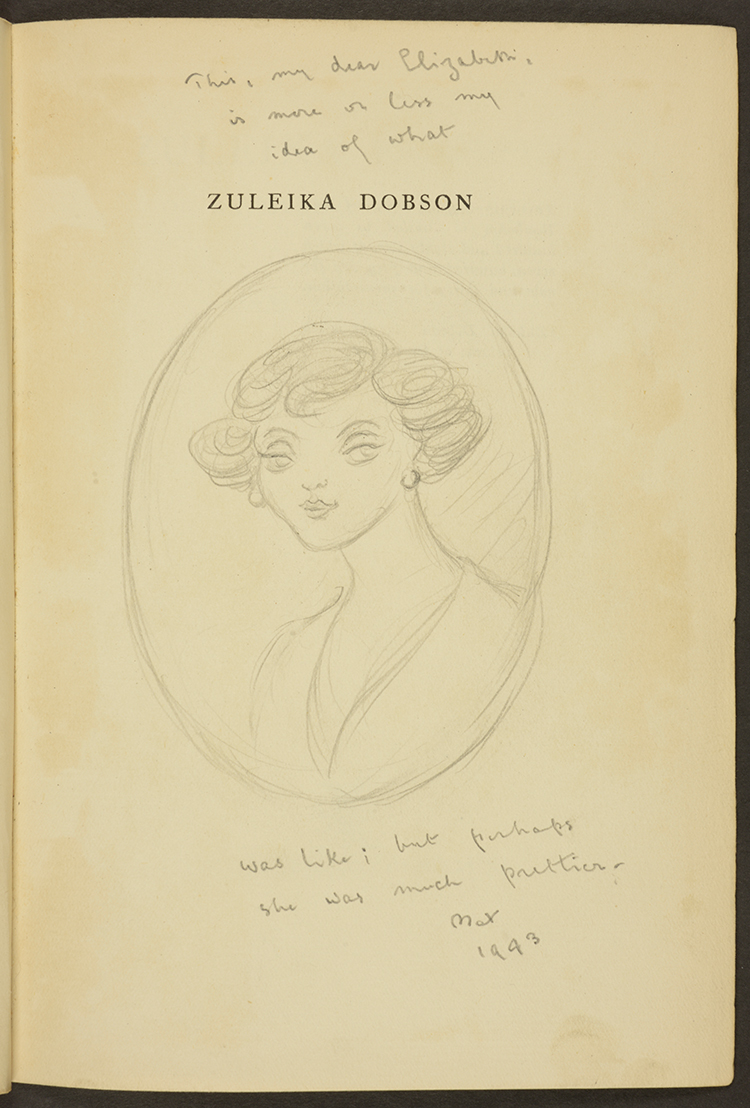 This, my dear Elizabeth,
is more or less my
idea of what
ZULEIKA DOBSON
was like; but perhaps
she was much prettier.
Max
1943